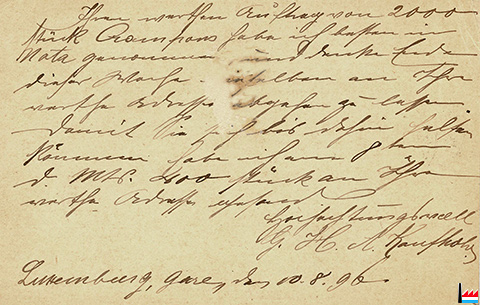 Ihren werthen Auftrag von 2000
stück habe ich bestens in
Nota genommen und denke Ende
dieser Woche an Ihre
werthe Adresse abgehen zu lassen.
damit Sie sich bis dahin helfen
können habe ich am 8ten
d. Mts. 400 stück an Ihre
werthe Adresse gesand
Hochachtungsvoll
Luxemburg, Gare, den 10.8.90